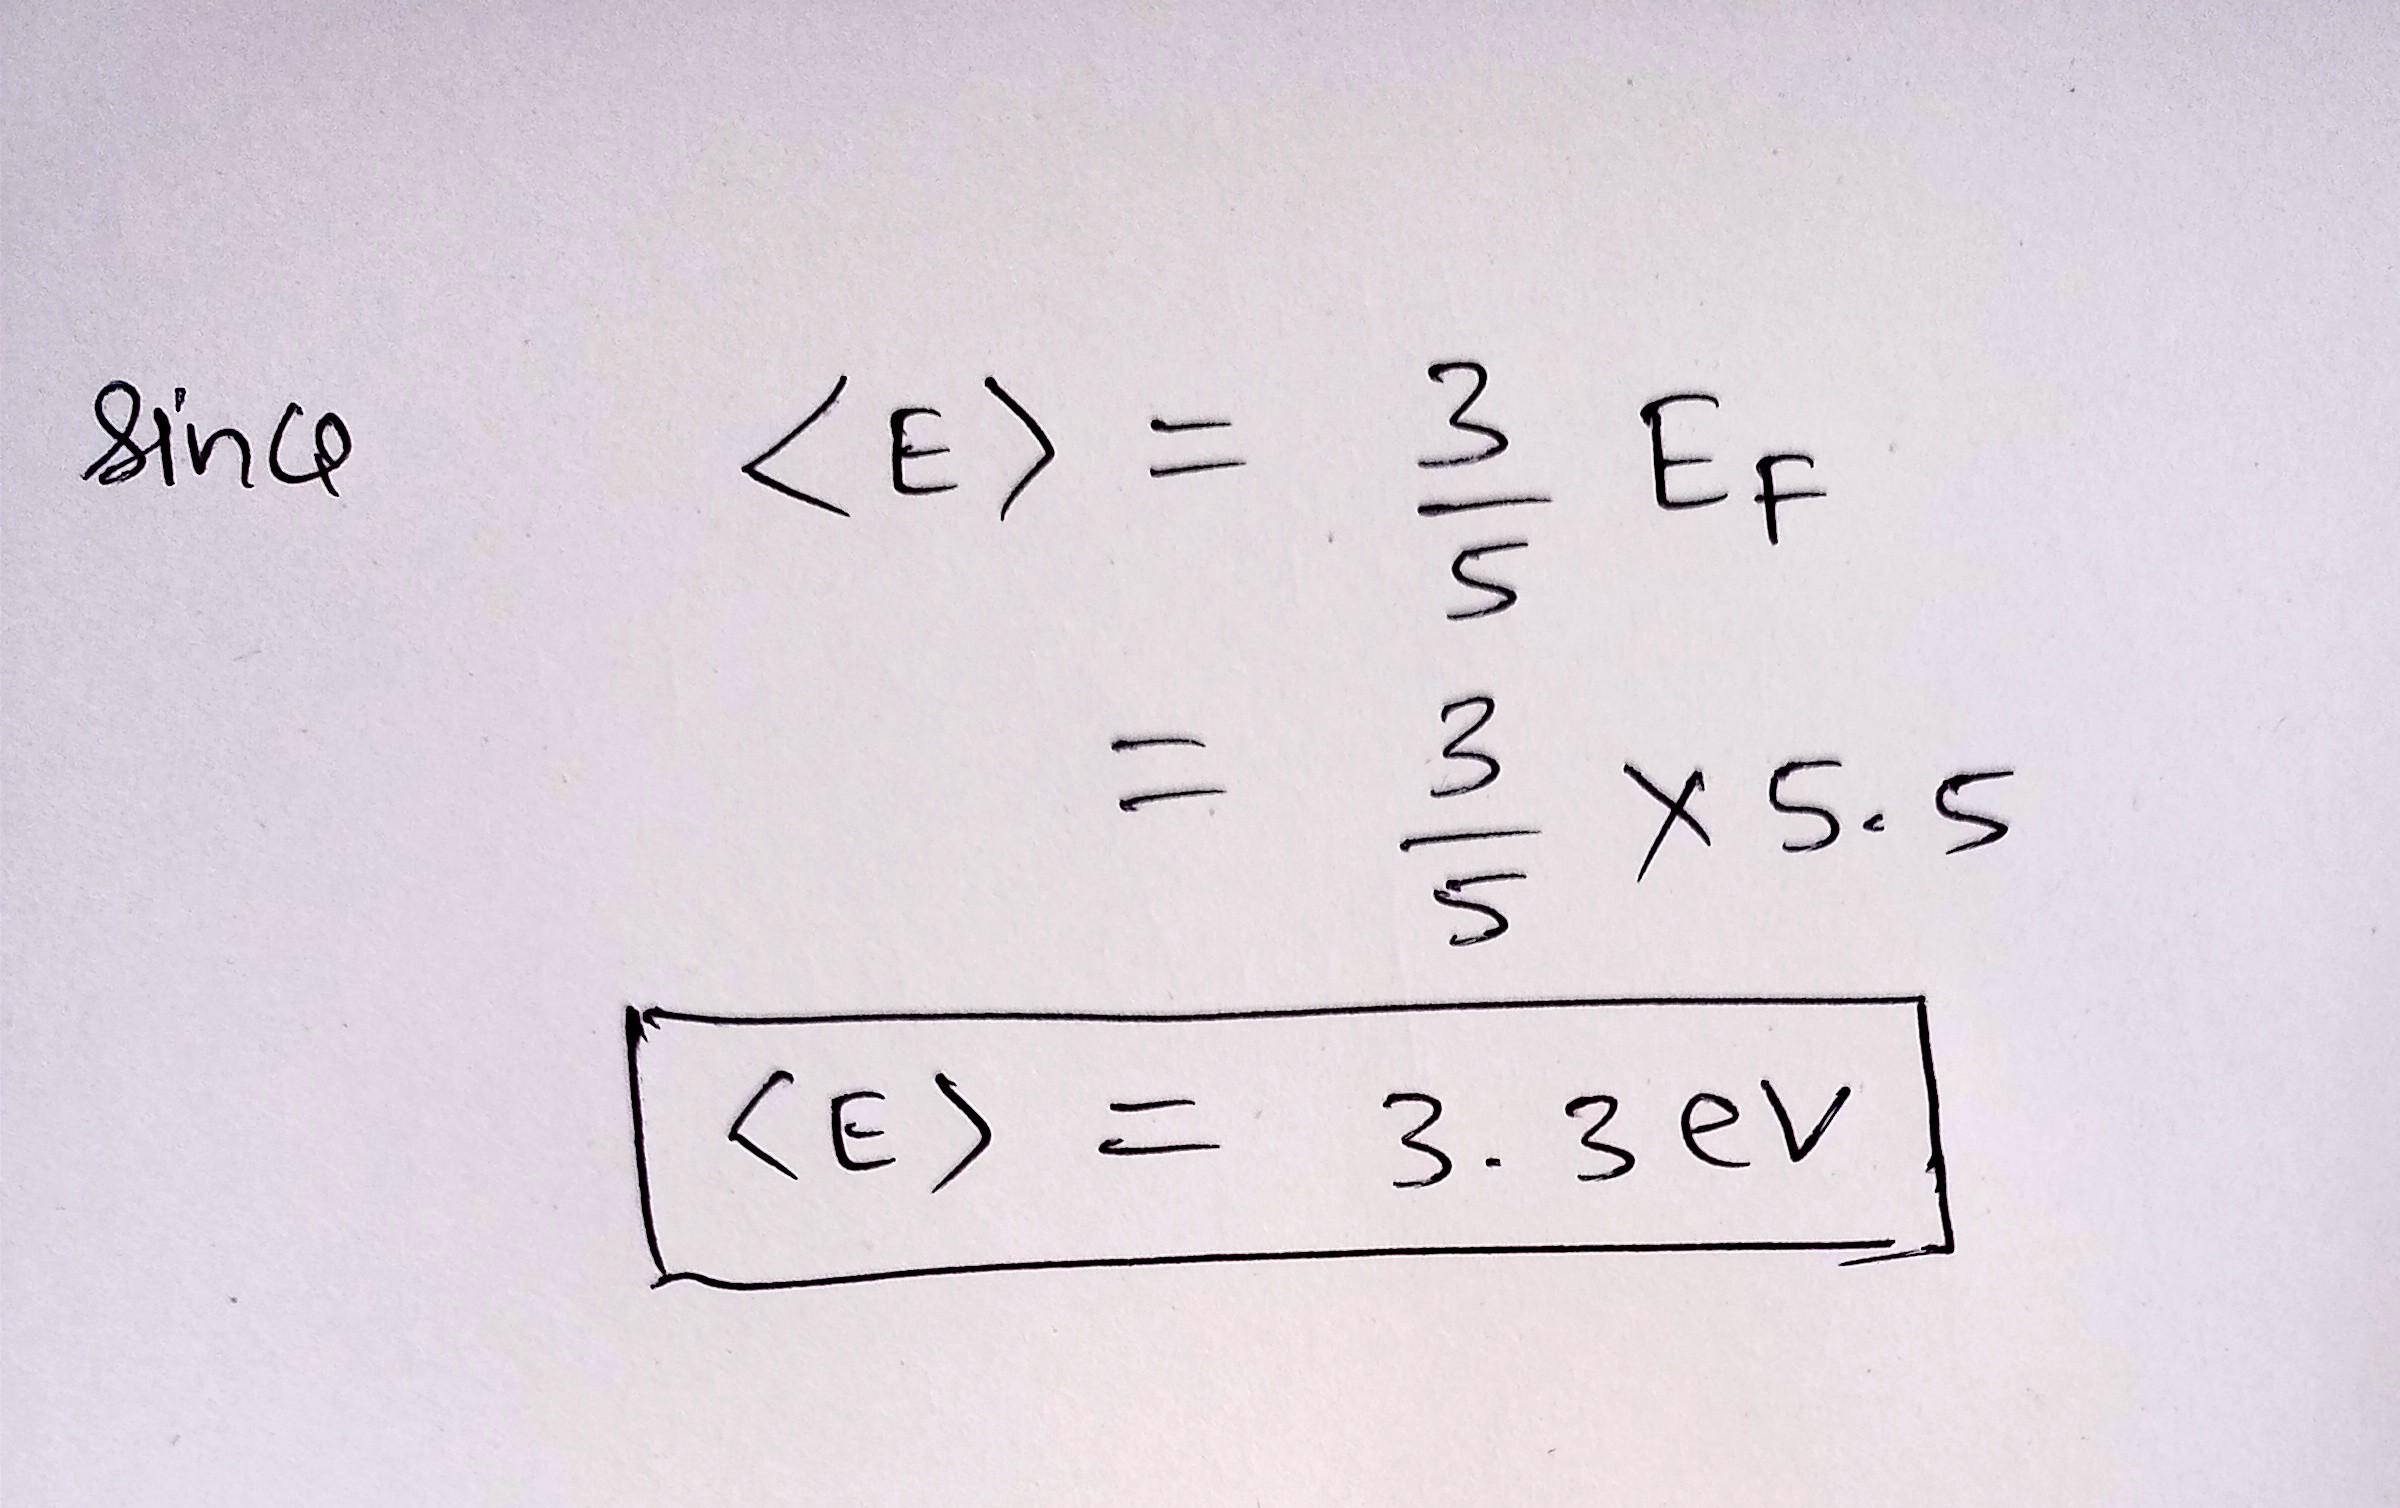 since <E> = 3/5 E_F
= 3/5 × 5.5
<E> = 3.3 eV